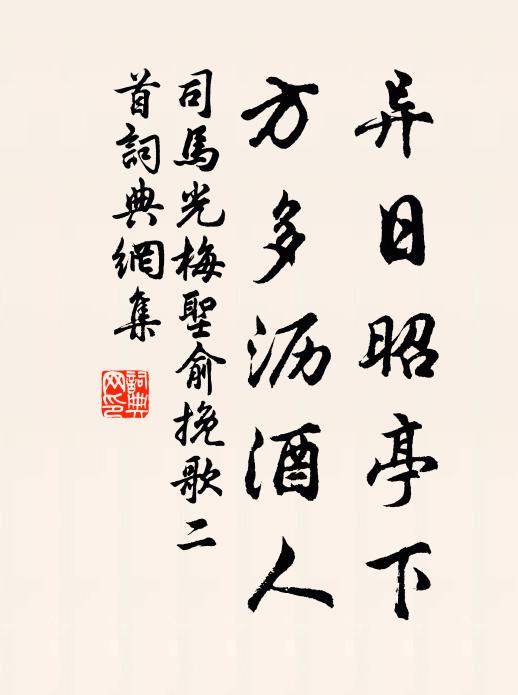 异日昭亭下
方多沥酒人
司馬光梅聖俞挽歌二
首詞典網集
詞典
网印